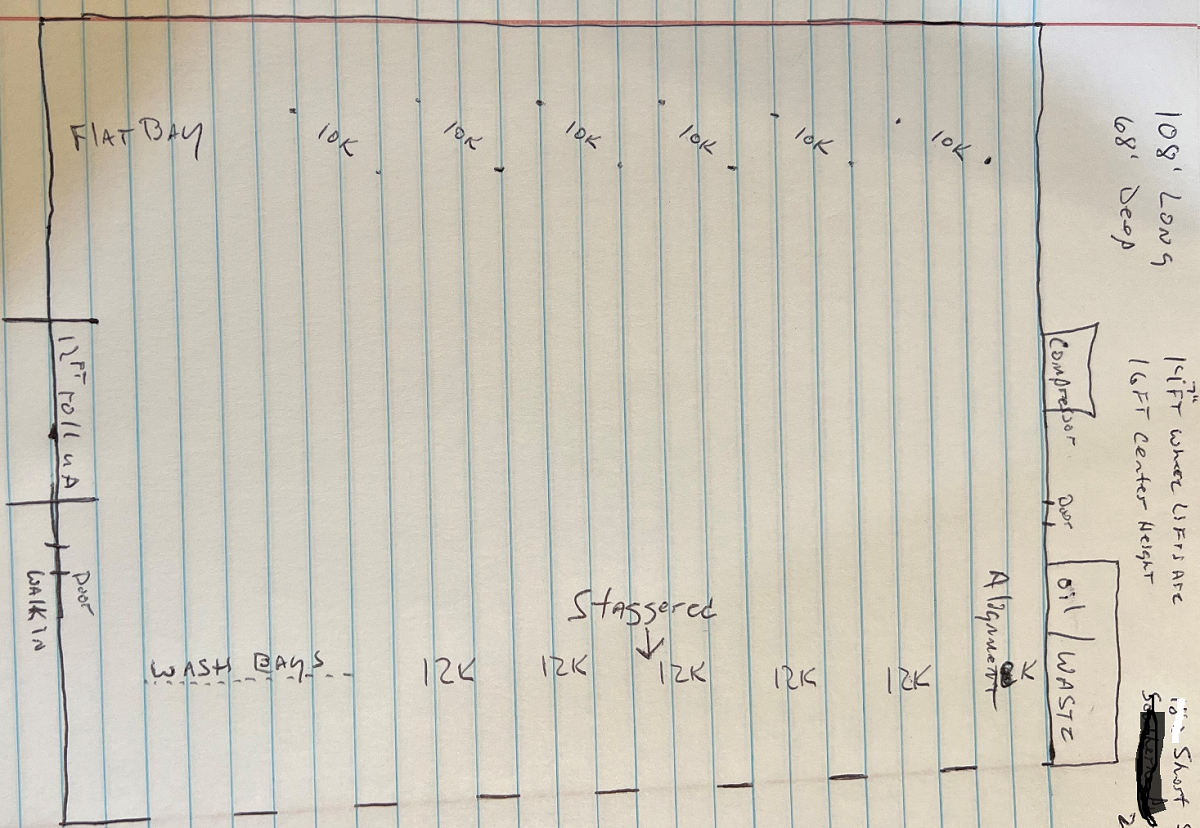 FlAT BAY
10K
10K
10K
10K
10K
10K
108' Long
68' Deep
12FT roll uP
Compressor
14FT 7" where LiFTs Are
16FT Center Height
Door
Door
WALK IN
Staggered
WASH BAYS
12K
12K
12K
12K
12K
Alignment
K
oil/WASTE
Short